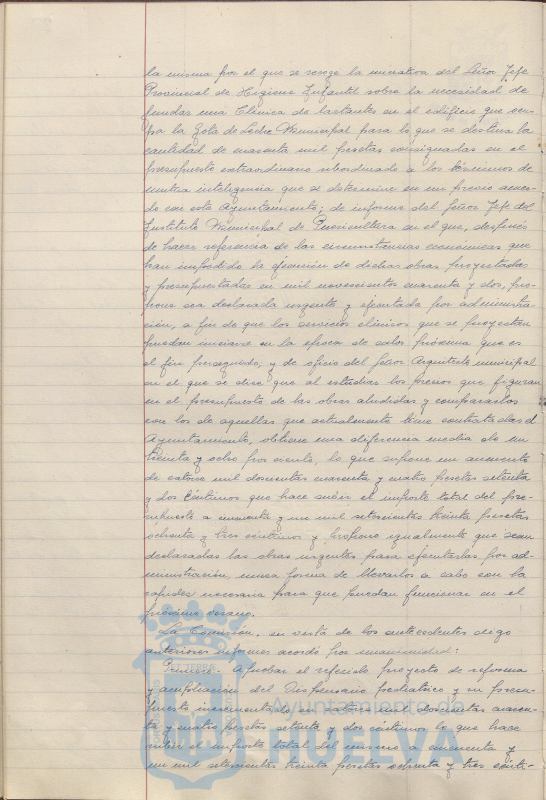 la misma por el que se recoge la iniciativa del Señor Jefe
Provincial de Higiene Infantil sobre la necesidad de
fundar una Clínica de lactantes en el edificio que ocu-
pa la Gota de Leche Municipal para lo que se destina la
cantidad de cuarenta mil pesetas consignadas en el
presupuesto extraordinario subordinado a los términos de
mutua inteligencia que se determine en un previo acuer-
do con este Ayuntamiento; de informe del Señor Jefe del
Instituto Municipal de Puericultura en el que, después
de hacer referencia de las circunstancias económicas que
han impedido la ejecución de dichas obras proyectadas
y presupuestadas en mil novecientos cuarenta y dos, pro-
pone sea declarada urgente y ejecutada por administra-
ción, a fin de que los servicios clínicos que se proyectan
puedan iniciarse en la época de calor próxima que es
el fin perseguido; y de oficio del Señor Arquitecto municipal
en el que se dice que al estudiar los precios que figuran
en el presupuesto de las obras aludidas y compararlos
con los de aquellas que actualmente tiene contratadas el
Ayuntamiento, obtiene una diferencia media de un
treinta y ocho por ciento, lo que supone un aumento
de catorce mil doscientas cuarenta y cuatro pesetas setenta
y dos céntimos que hace subir el importe total del pre-
supuesto a cincuenta y un mil setecientas treinta pesetas
ochenta y tres céntimos y propone igualmente que sean
declaradas las obras urgentes para ejecutarlas por ad-
ministración, única forma de llevarlos a cabo con la
rapidez necesaria para que puedan funcionar en el
próximo verano.
La Comisión, en vista de los antecedentes digo
anteriores informes acordó por unanimidad:
Primero: Aprobar el referido proyecto de reforma
y ampliación del Dispensario pediátrico y su presu-
puesto incrementado en catorce mil doscientas cuaren-
ta y cuatro pesetas setenta y dos céntimos lo que hace
subir el importe total del mismo a cincuenta y
un mil setecientas treinta pesetas ochenta y tres cénti-
Ayuntamiento de
HUELVA